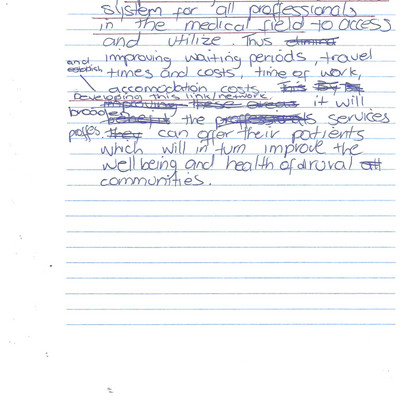 system for all proffesionals
in the medical field to access
and utilize. Thus
improving waiting periods, travel
and
times and costs, time of work,
accomodation costs. This
Developing this link/network
improving these areas it will
broaden
benefit the professionals services
proffes. they can offer their patients
which will in turn improve the
well being and health of rural
communities.